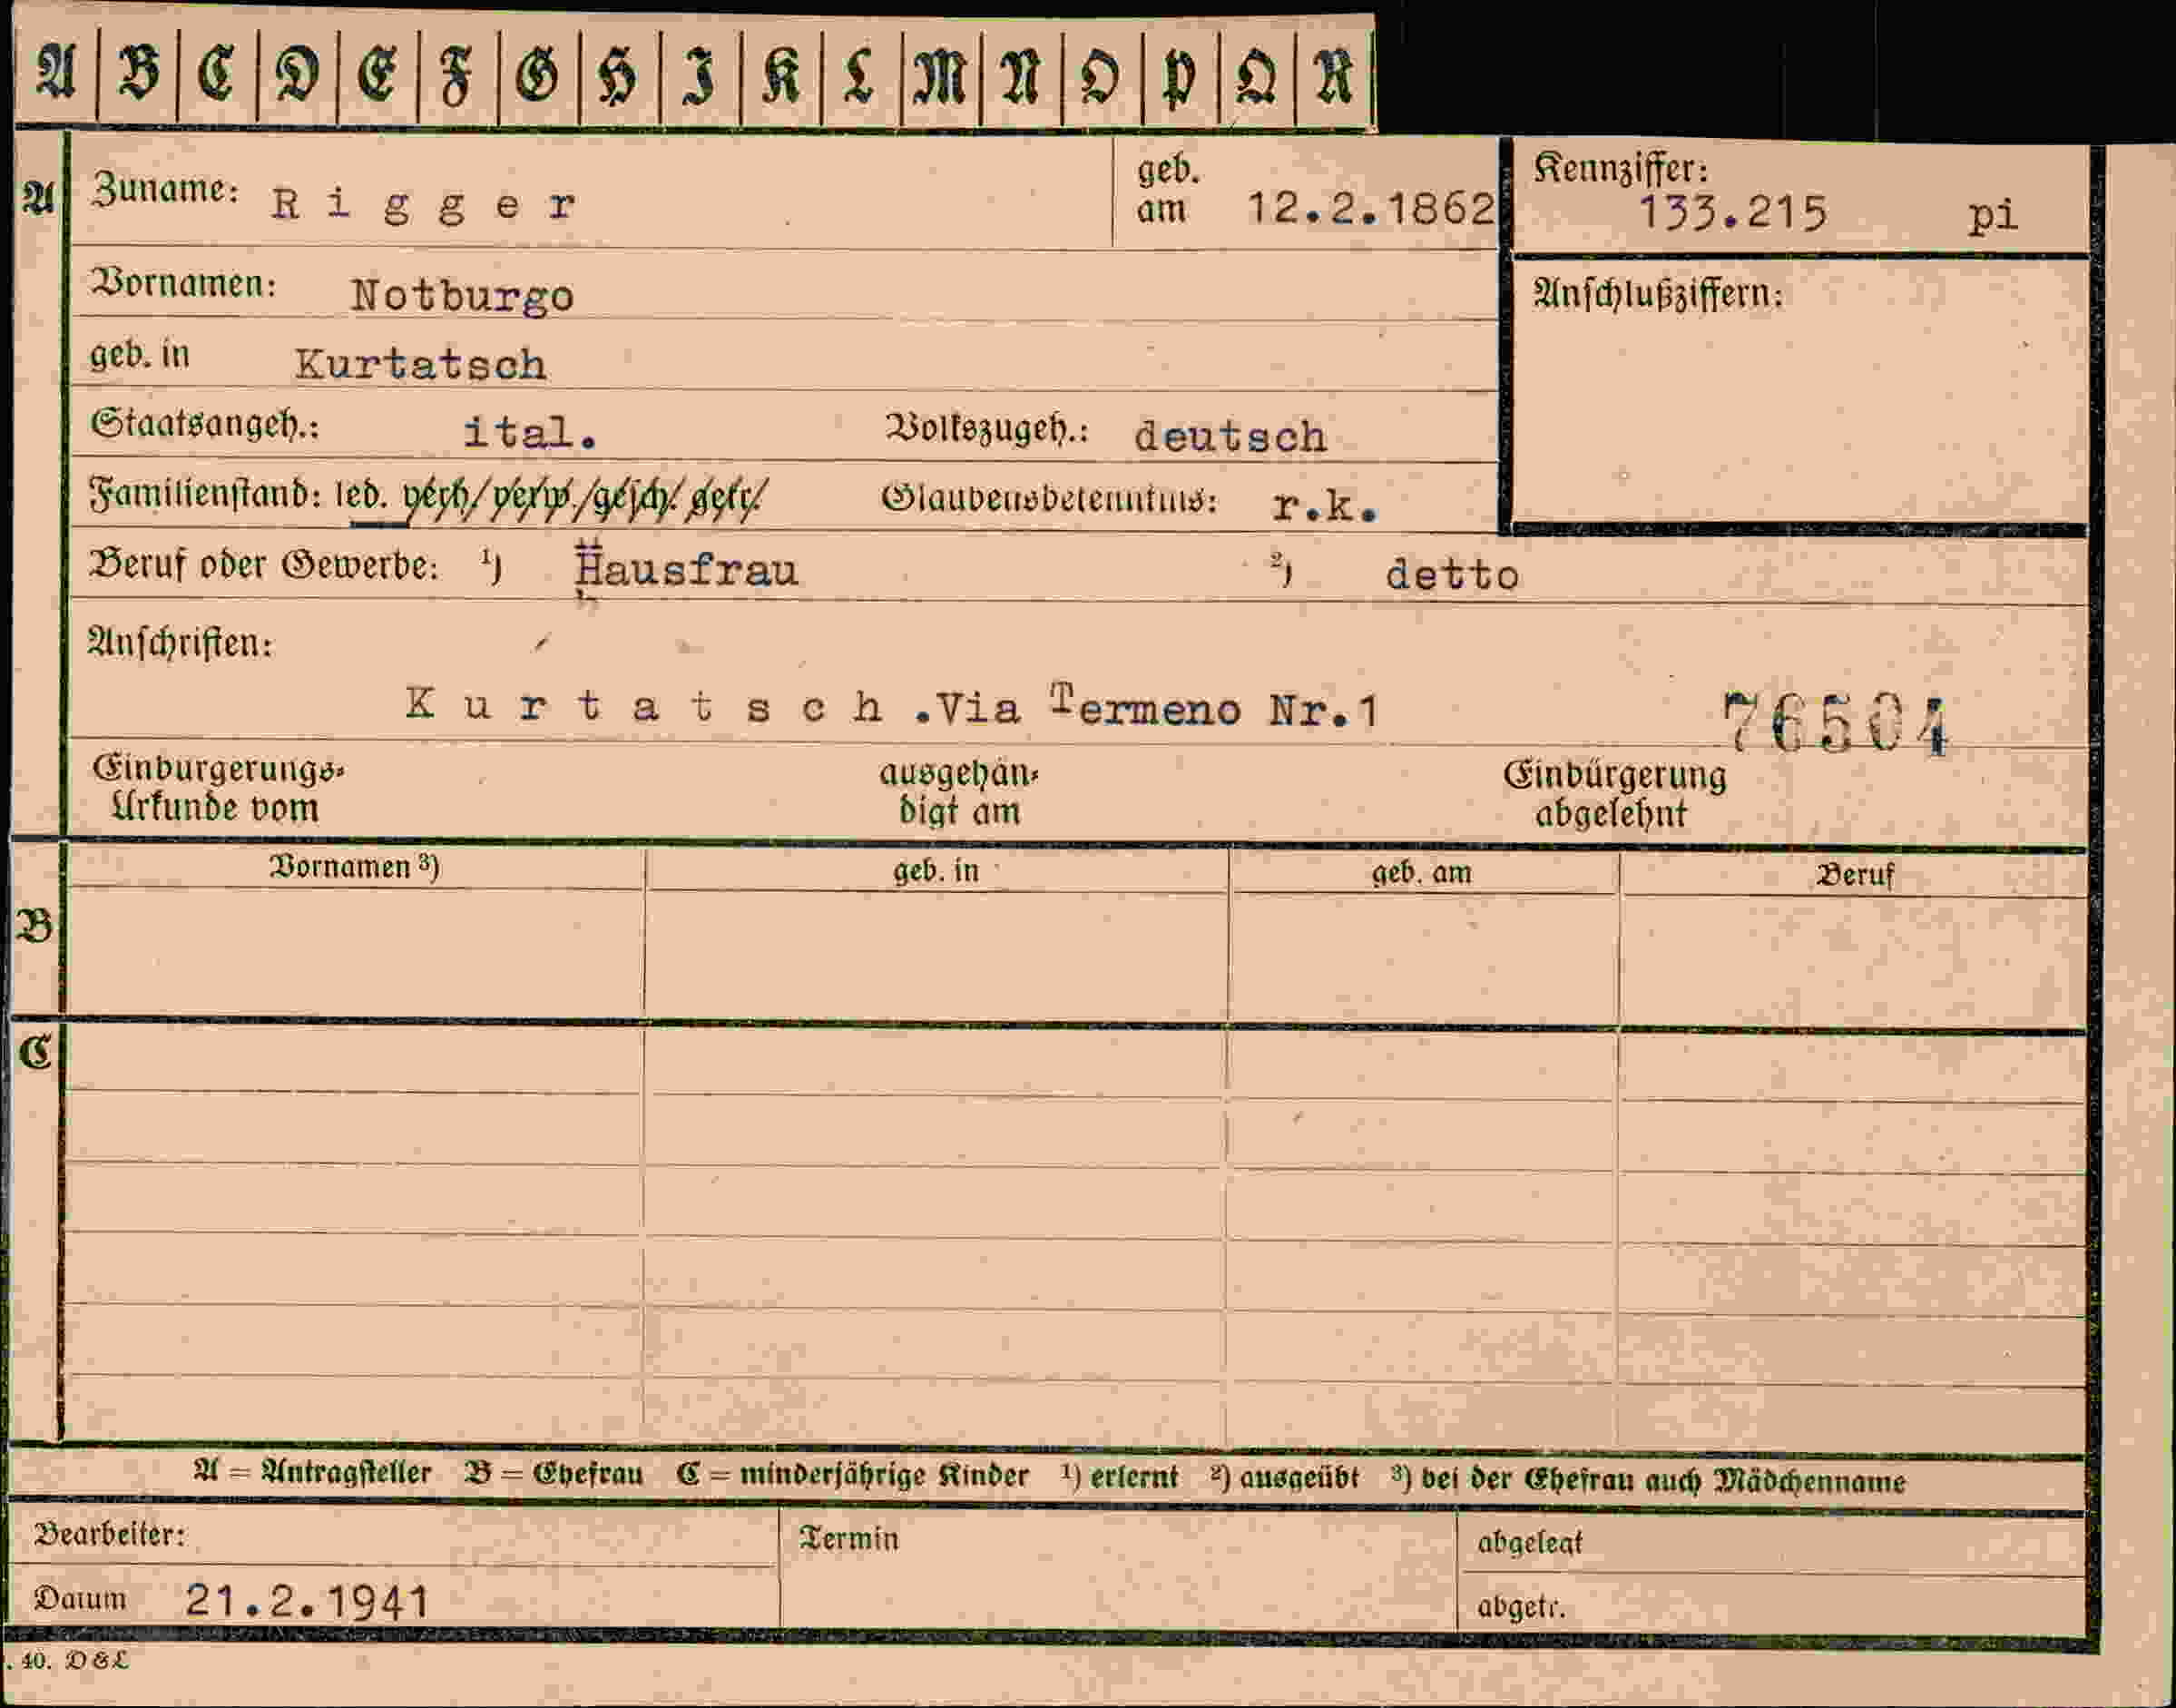 A B C D E F G H I K L M N O P Q R
A Zuname: Rigger geb. am 12.2.1862 Kennziffer: 133.215 pi
Vornamen: Notburgo Anschlußziffern:
geb. in Kurtatsch
Staatsangeh.: ital. Volkszugeh.: deutsch
Familienstand: led. verh./verw./gesch./getr. Glaubensbekenntnis: r.k.
Beruf oder Gewerbe: ¹) Hausfrau ²) detto
Anschriften:
Kurtatsch.Via Termeno Nr.1 76504
Einbürgerungs- ausgehän- Einbürgerung
Urkunde vom digt am abgelehnt
Vornamen ³) geb. in geb. am Beruf
B
C
A = Antragsteller B = Ehefrau C = minderjährige Kinder ¹) erlernt ²) ausgeübt ³) bei der Ehefrau auch Mädchenname
Bearbeiter: Termin abgelegt
Datum 21.2.1941 abgetr.
. 40. D&L